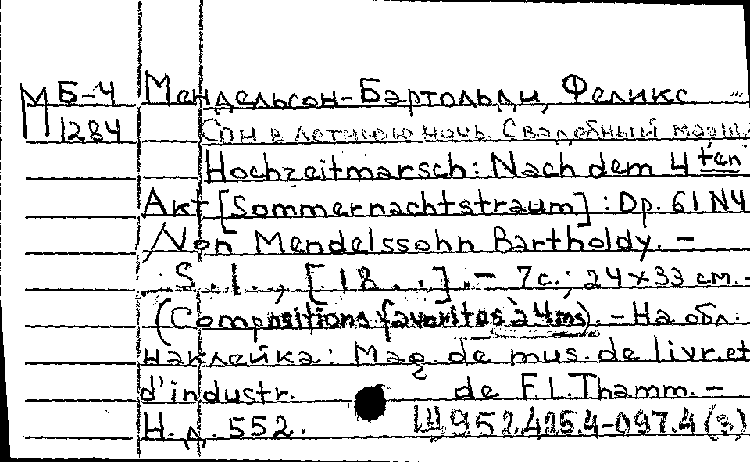 М Б-4 Мендельсон-Бартольди, Феликс
П 1284 Сон в летнюю ночь. Свадебный марш.
Hochzeitmarsch: Nach dem 4 ten
Akt [Sommernachtstraum]: Op. 61 N4
/Von Mendelssohn Bartholdy. –
S. l., [18 . .]. – 7 с.; 24 x 33 см. –
(Compositions favorites à 4 ms). – На обл.
наклейка: Mag. de mus. de livr. et
d'industr. de F. L. Thamm. –
Н. д. 552. Ш952.425.4-097.4(3)